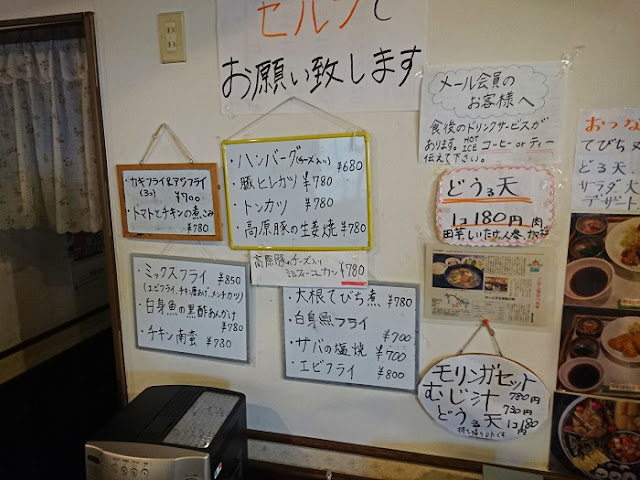 セルフで
お願い致します
メール会員の
お客様へ
食後のドリンクサービスが
あります。HOT ICE コーヒー or ティー
伝えて下さい。
カキフライ&アジフライ
(3コ) ¥700
・トマトとチキンの煮こみ
¥780
・ハンバーグ(チーズ入り) ¥680
・豚ヒレカツ ¥780
・トンカツ ¥780
・高原豚の生姜焼 ¥780
高原豚のチーズ入り
ミルフィーユカツ ¥780
・ミックスフライ ¥850
(エビフライ、チキン唐あげ、メンチカツ)
・白身魚の黒酢あんかけ
¥780
・チキン南蛮 ¥780
・大根てびち煮 ¥780
・白身魚フライ
¥700
・サバの塩焼 ¥700
・エビフライ ¥800
どぅる天
1コ180円 肉
田芋 しいたけ 人参
モリンガセット
780円
むじ汁
730円
どぅる天 1コ180円
持ち帰りOKです
おつな
てびち
どる天
サラダ
デザート